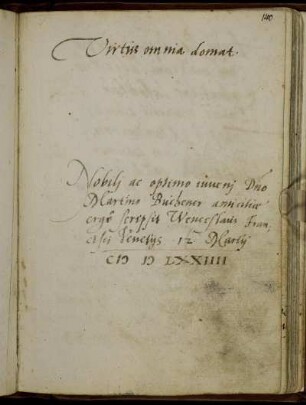 140
Virtus omnia domat.
Nobili ac optimo iuveni Dno
Martino Büchener amicitiae
ergo scripsit Wenceslaus Fran
Venetijs 12 Martij
CIↃ IↃ LXXIIII